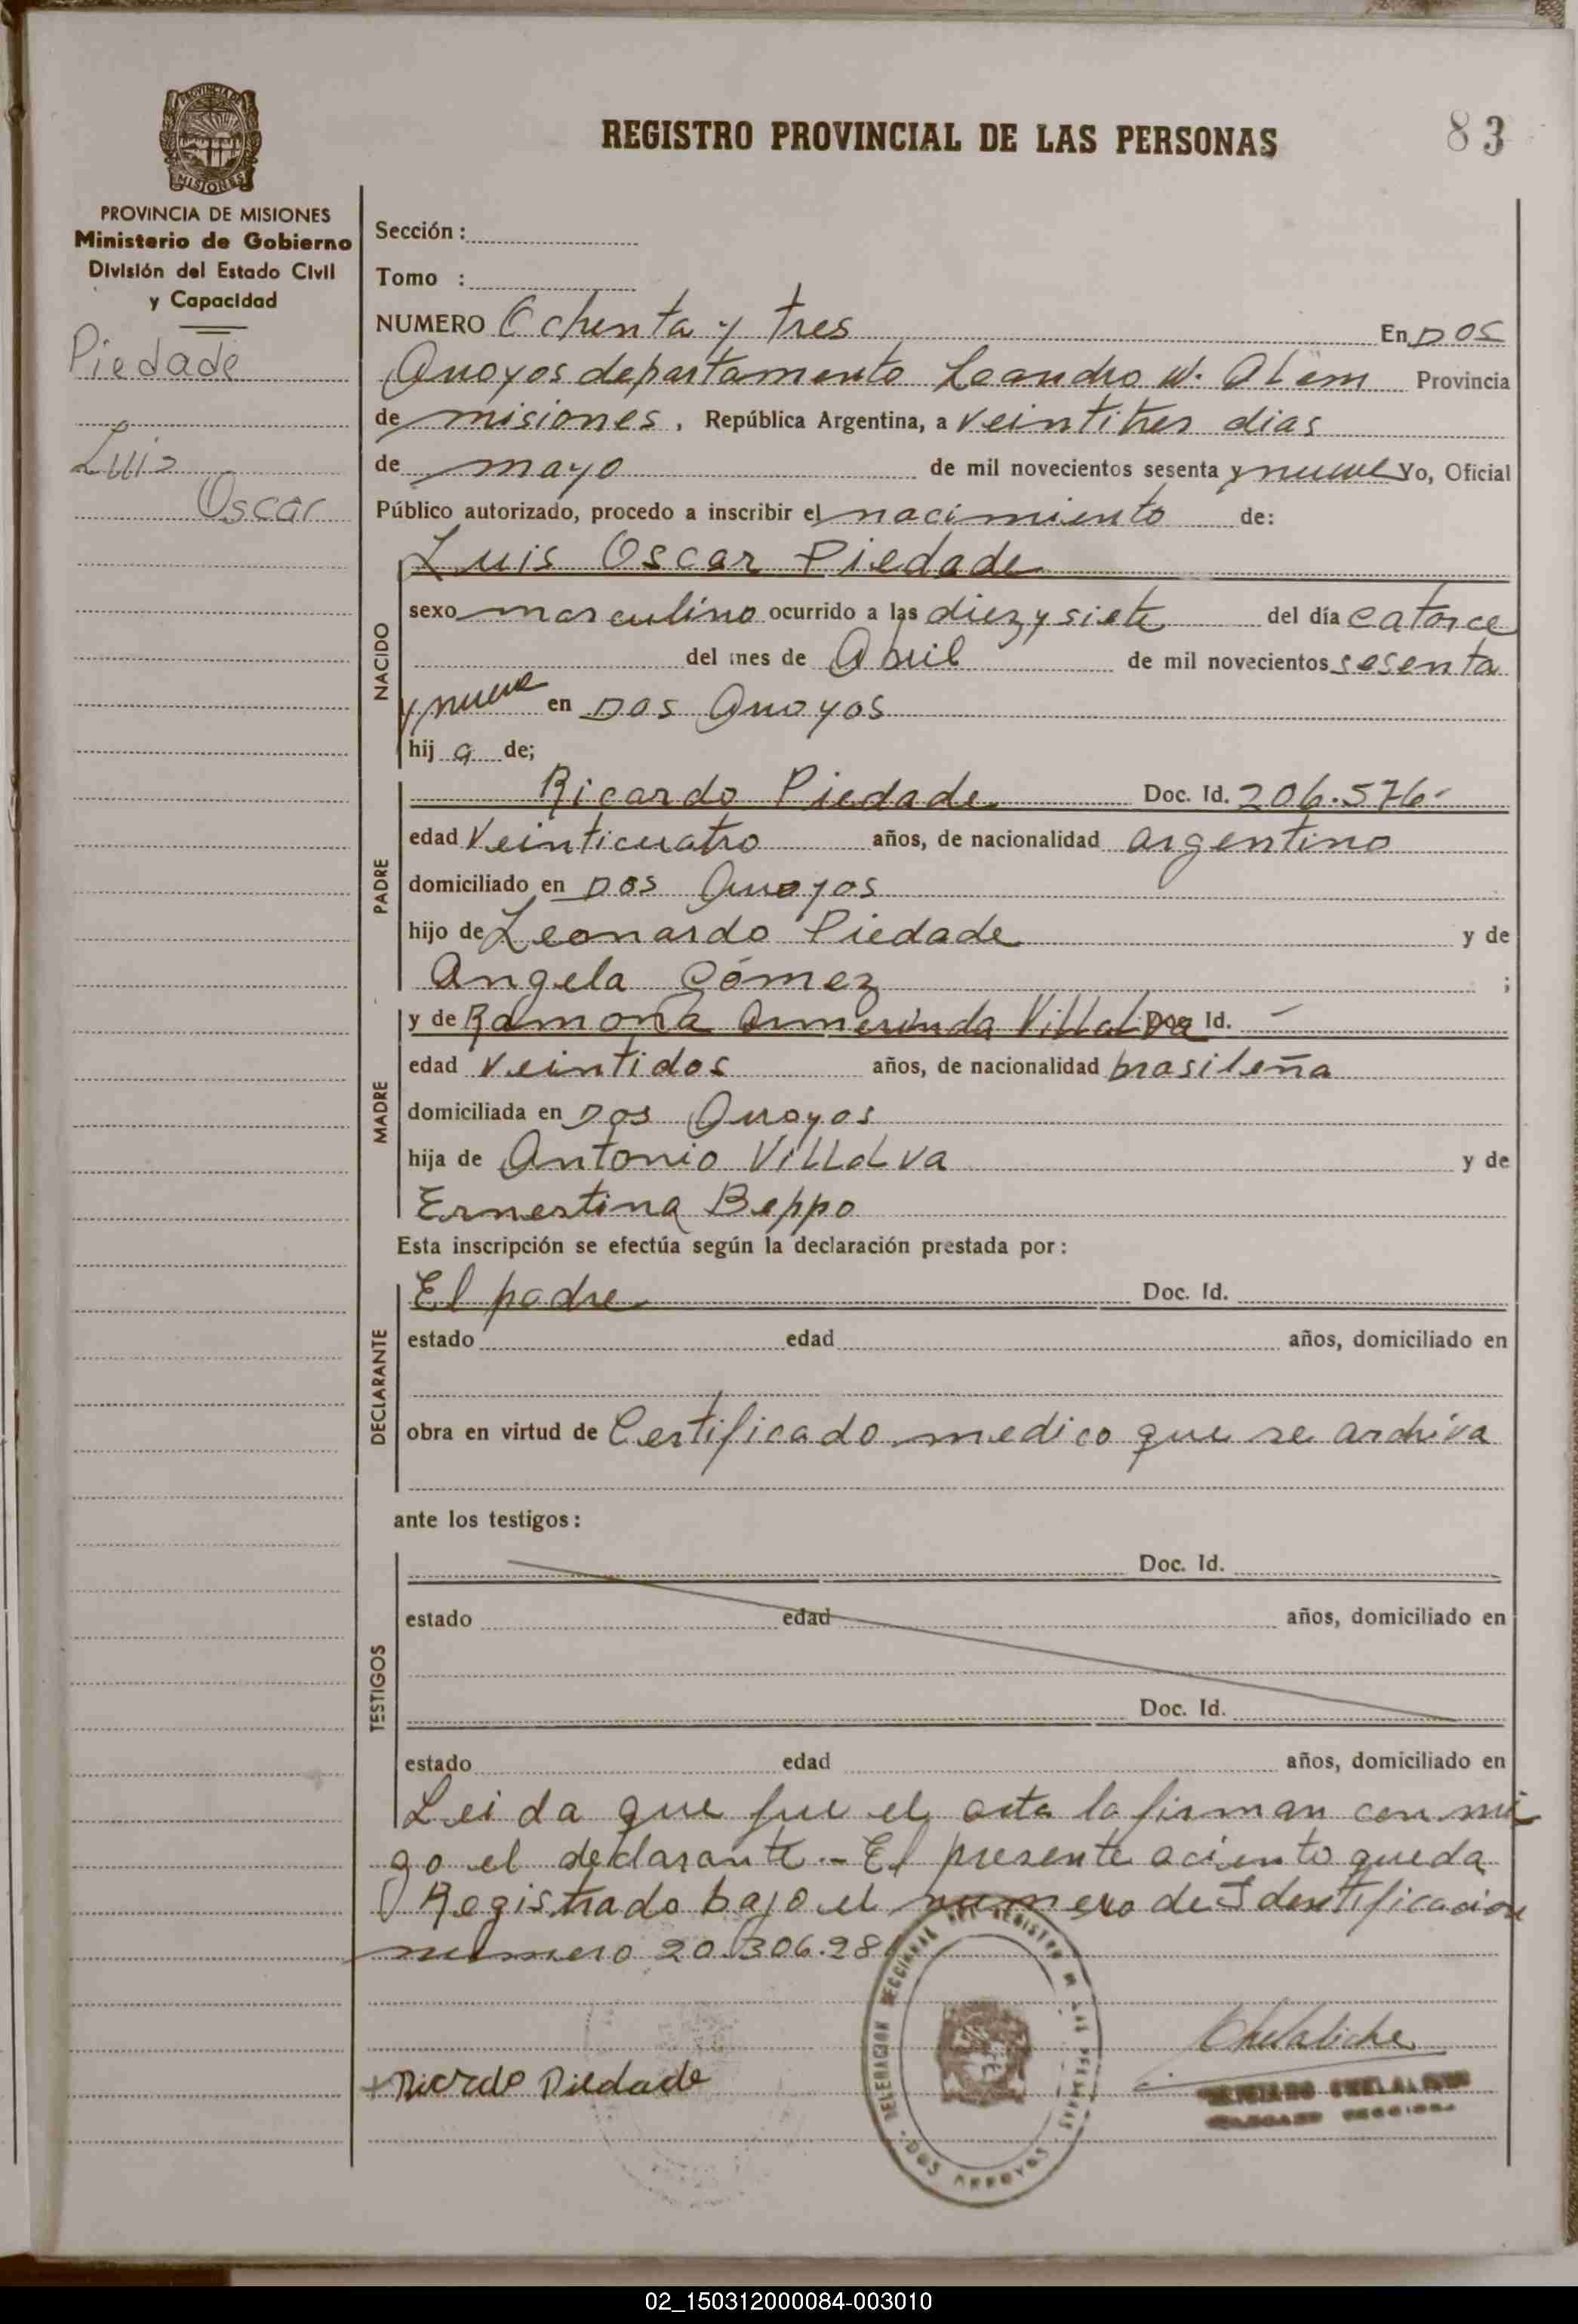 REGISTRO PROVINCIAL DE LAS PERSONAS
83
PROVINCIA DE MISIONES
PROVINCIA DE MISIONES
Ministerio de Gobierno
División del Estado Civil
y Capacidad
Piedade
Luis
Oscar
Sección :
Tomo :
NUMERO Ochenta y tres En Dos
Arroyos departamento Leandro N. Alem Provincia
de misiones, República Argentina, a veintitres dias
de mayo de mil novecientos sesenta y nueve Yo, Oficial
Público autorizado, procedo a inscribir el nacimiento de:
NACIDO
Luis Oscar Piedade
sexo masculino ocurrido a las diez y siete del día catorce
del mes de Abril de mil novecientos sesenta
y nueve en Dos Arroyos
hij a de;
PADRE
Ricardo Piedade Doc. Id. 206.576-
edad veinticuatro años, de nacionalidad argentino
domiciliado en Dos Arroyos
hijo de Leonardo Piedade y de
Angela Gómez ;
MADRE
y de Ramona Ormerinda Villalva Doc. Id. -
edad veintidos años, de nacionalidad brasileña
domiciliada en Dos Arroyos
hija de Antonio Villalva y de
Ernestina Beppo
Esta inscripción se efectúa según la declaración prestada por :
DECLARANTE
El padre Doc. Id.
estado edad años, domiciliado en
obra en virtud de Certificado medico que se archiva
ante los testigos :
TESTIGOS
Doc. Id.
estado edad años, domiciliado en
Doc. Id.
estado edad años, domiciliado en
Leida que fue el acta la firman conmi
go el declarante.- El presente aciento queda
Registrado bajo el numero de Identificacion
numero 20.306.28
DELEGACION SECCIONAL DEL REGISTRO DE LAS PERSONAS
DOS ARROYOS
Ricrdo Piedade
Chelaliche
02_150312000084-003010